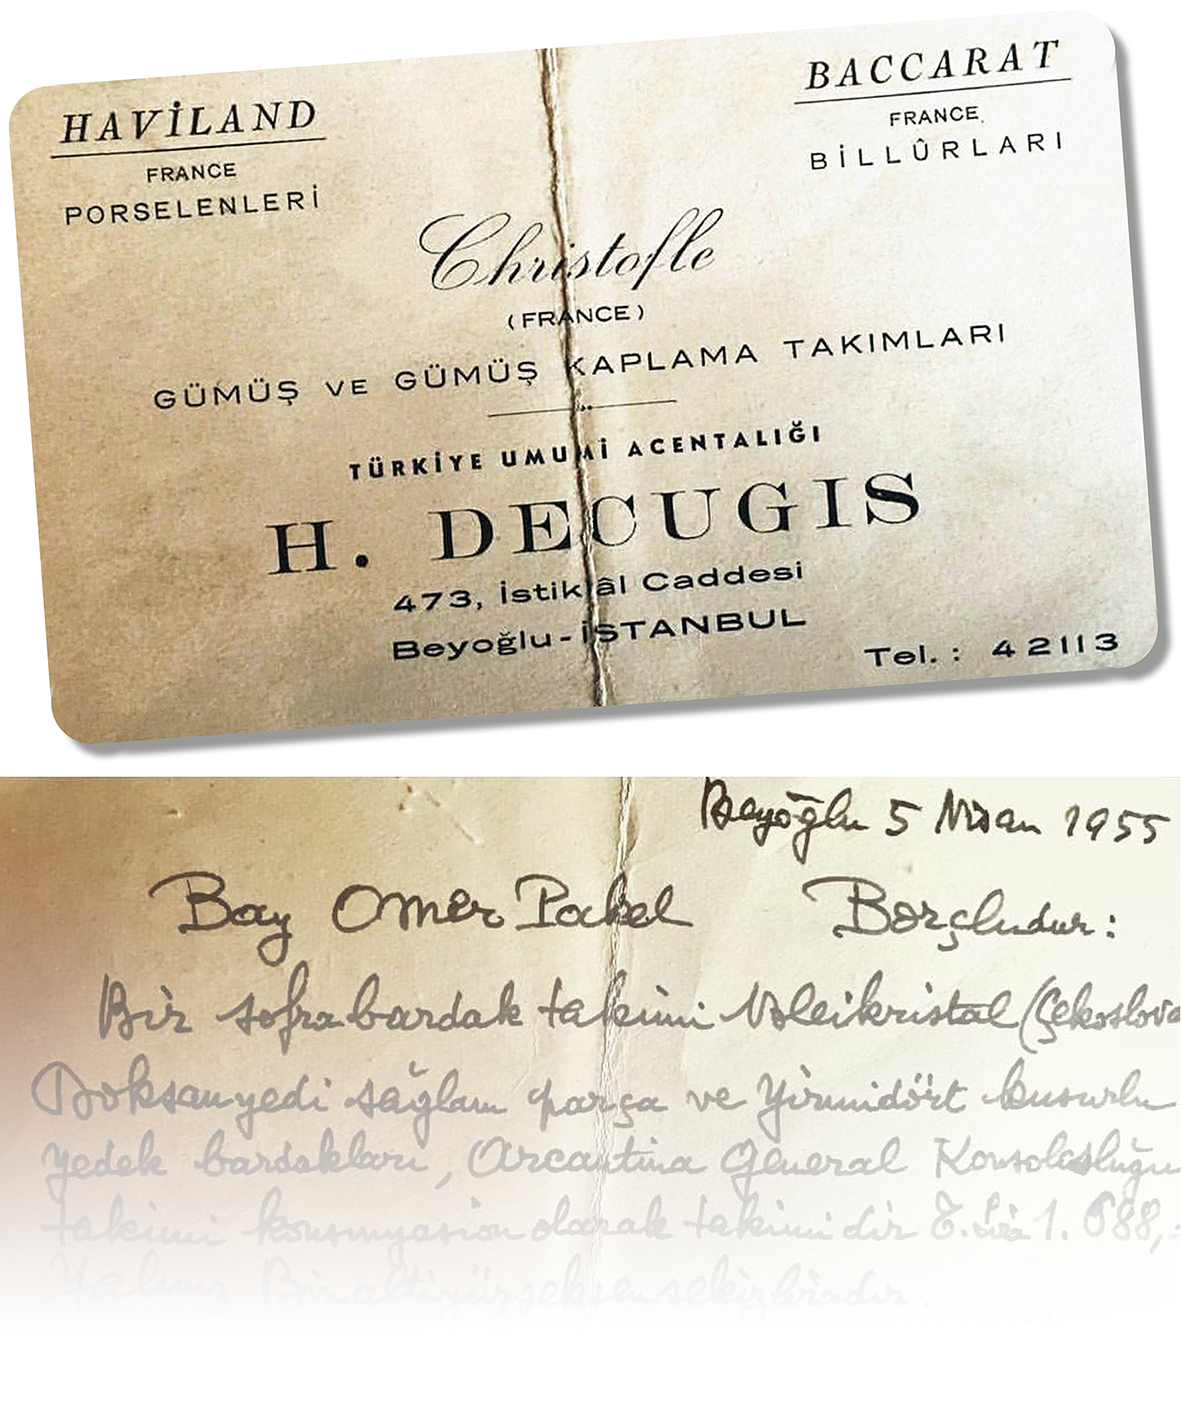 HAVİLAND
FRANCE
PORSELENLERİ
BACCARAT
FRANCE
BİLLÛRLARI
Christofle
(FRANCE)
GÜMÜŞ VE GÜMÜŞ KAPLAMA TAKIMLARI
TÜRKİYE UMUMİ ACENTALIĞI
H. DECUGIS
473, İstiklâl Caddesi
Beyoğlu - İSTANBUL
Tel. : 42113
Beyoğlu 5 Nisan 1955
Bay Omer Pakel Borçludur:
Bir sofra bardak takimi Bleikristal (Çekoslova
Doksanyedi sağlam parça ve Yirmidört kusurlu
yedek bardakları, Arcantina General Konsolosluğu
takimi konsinyasion olarak takimidir T. Lira 1.688,-
Yalnız Binaltiyüzseksensekizliradır.